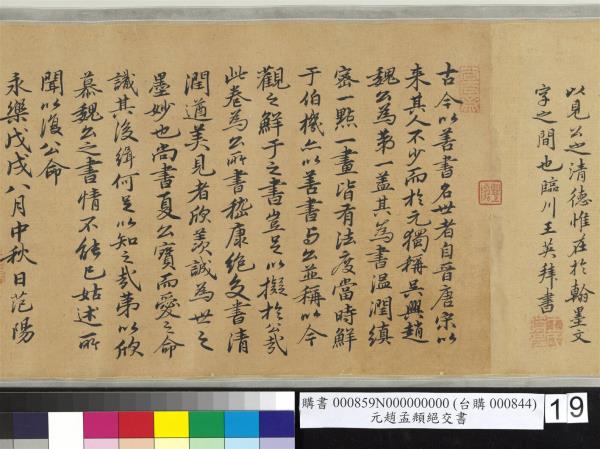 以見公之清德惟在於翰墨文
字之間也臨川王英拜書
古今以善書名世者自晉唐宋以
来其人不少而於元獨稱吳興趙
魏公為第一蓋其為書温潤縝
密一點一畫皆有法度當時鮮
于伯機亦以善書與公並稱以今
觀之鮮于之書豈足以擬於公哉
此卷為公所書嵇康絕交書清
潤遒美見者欣羨誠為世之
墨妙也尚書夏公寶而愛之命
識其後緝何足以知之哉第以欣
慕魏公之書情不能已姑述所
聞以復公命
永樂戊戌八月中秋日范陽
購書 000859N000000000 (台購 000844)
元趙孟頫絕交書
19